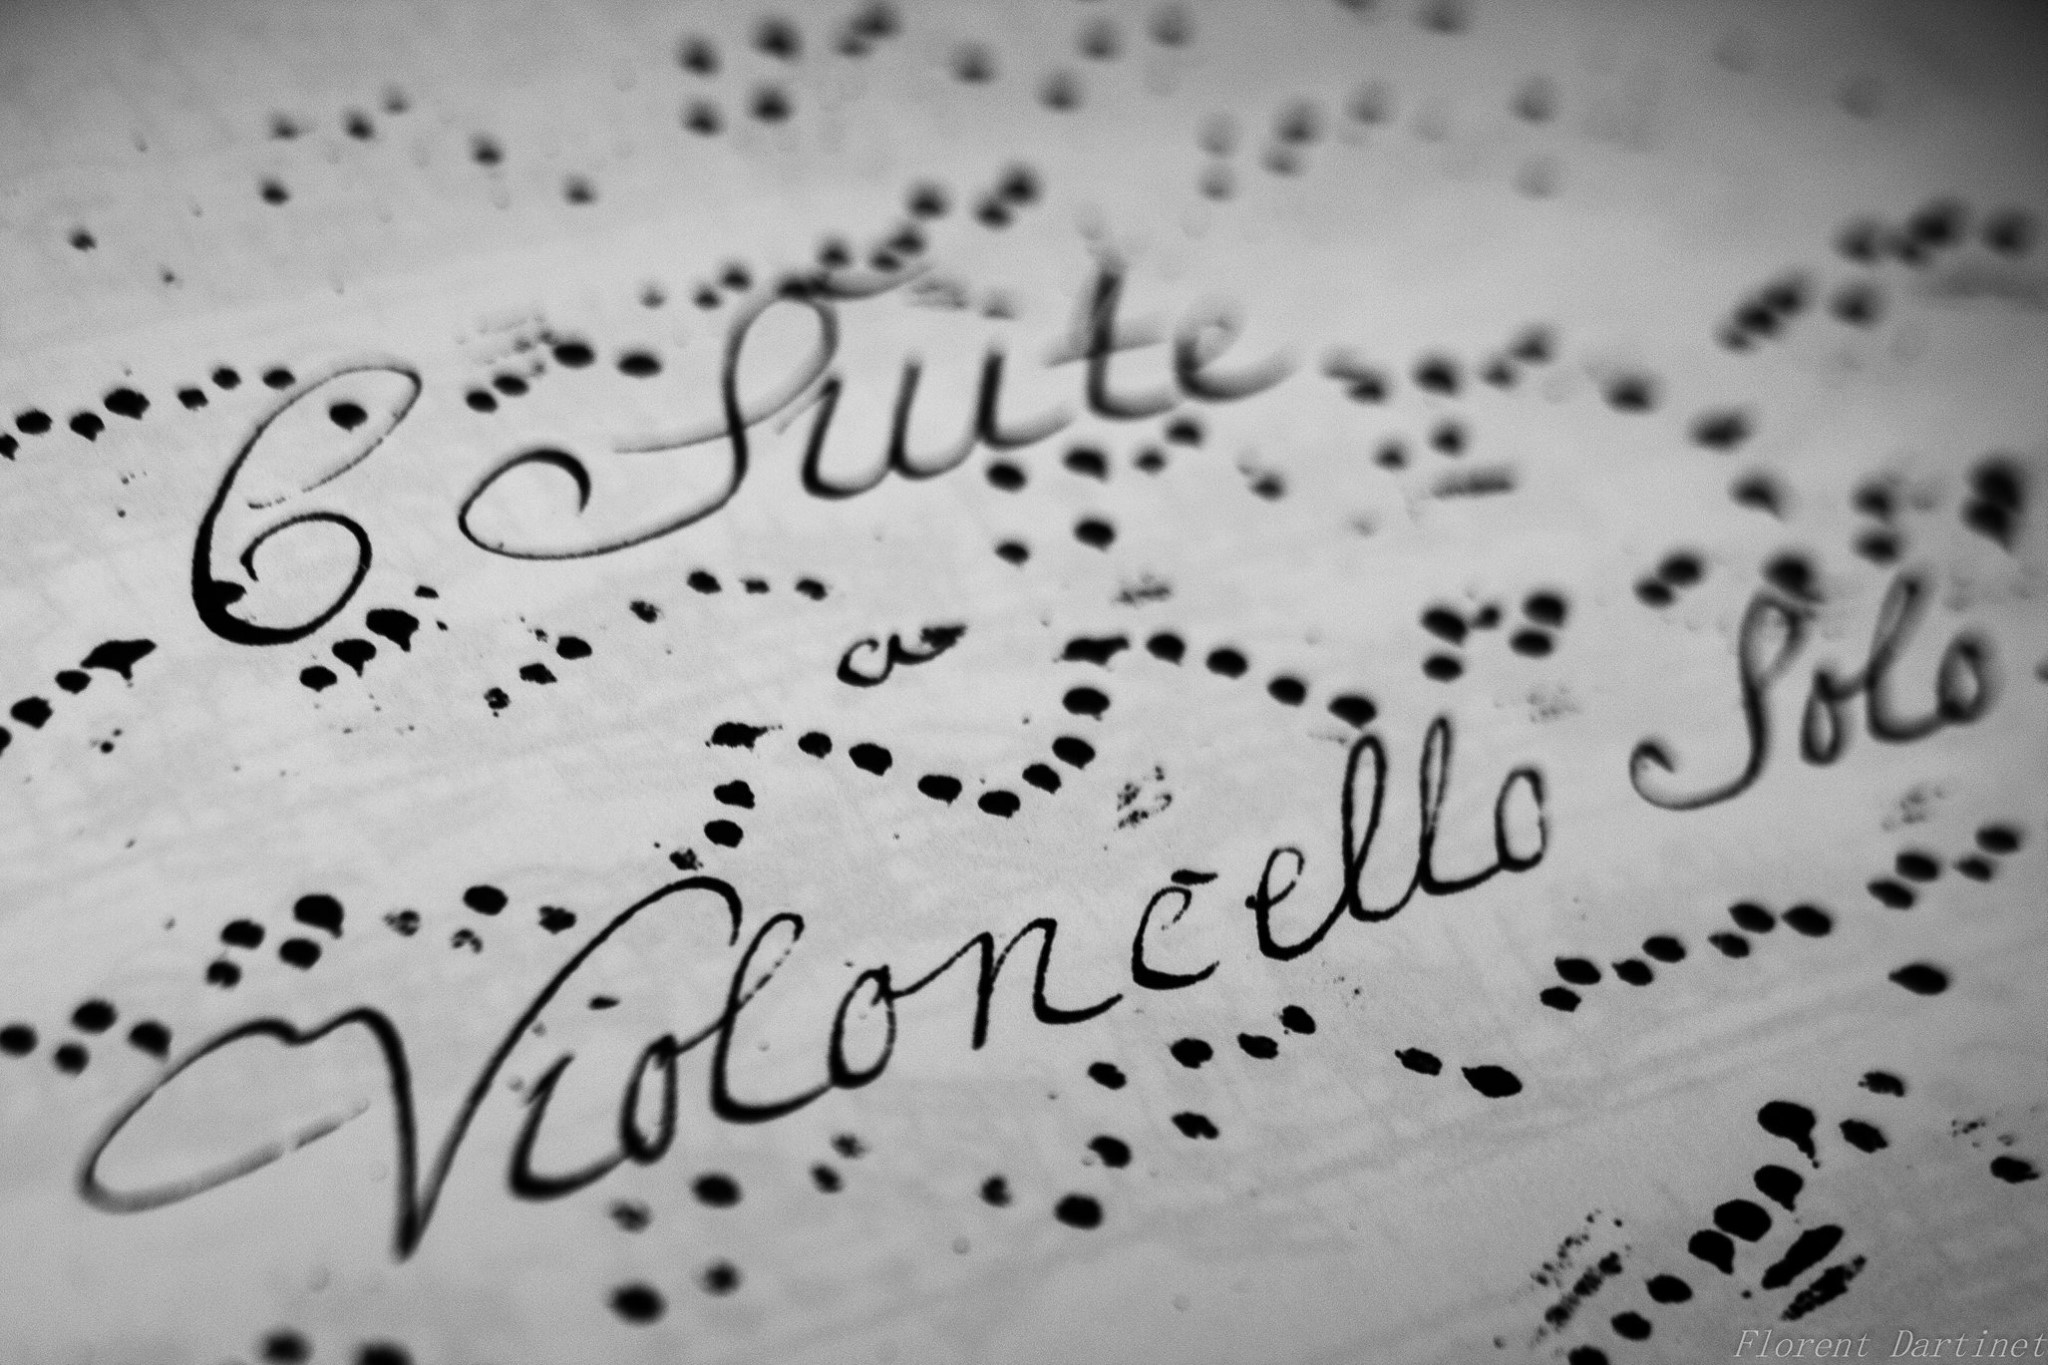 6 Suite
a
Violoncello Solo
Florent Dartinet